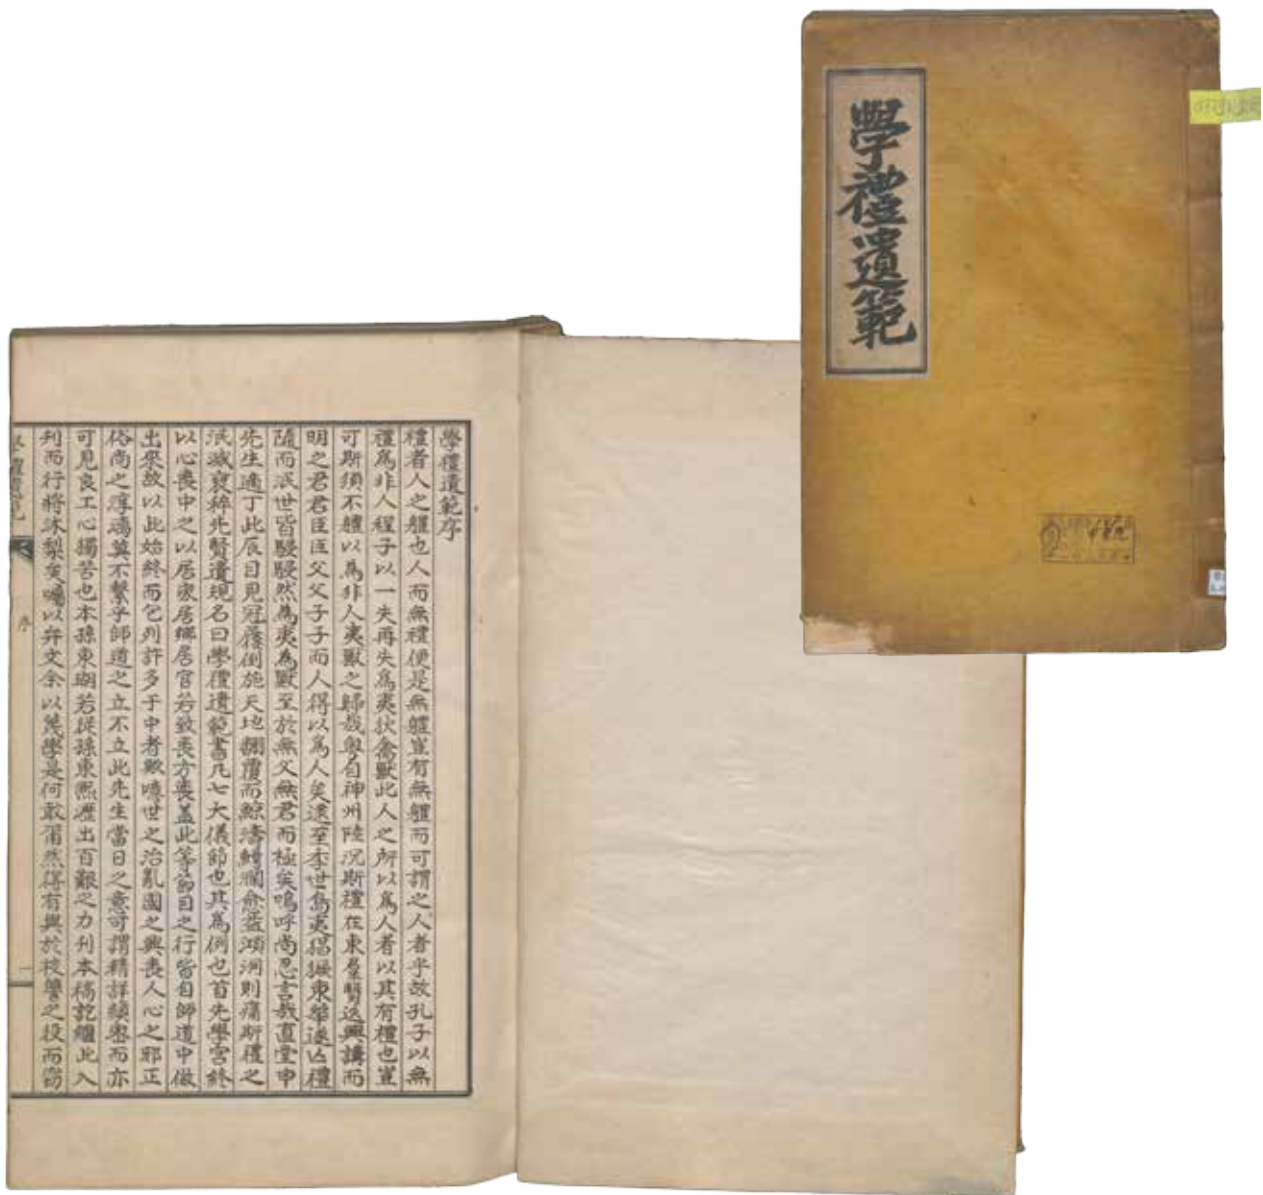 學禮遺範
學禮遺範序
禮者人之軆也人而無禮便是無軆豈有無軆而可謂之人者乎故孔子以無
禮爲非人程子以一失再失爲夷狄禽獸此人之所以爲人者以其有禮也豈
可斯須不軆以爲非人夷獸之歸哉奧自神州陸沉斯禮在東羣賢迭興講而
明之君君臣臣父父子子而人得以爲人矣逮至季世島夷猖獗東槃遂亡禮
隨而泯世皆駸駸然爲夷爲獸至於無父無君而極矣嗚呼尚忍言哉直堂申
先生適丁此辰目見冠屨倒施天地翻覆而鯨濤鰐瀾愈益澒洞則痛斯禮之
泯滅裒稡先賢遺規名曰學禮遺範書凡七大儀節也其爲例也首先學宮終
以心喪中之以居家居鄕居官若致喪方喪盖此等節目之行皆自師道中做
出來故以此始終而包列許多于中者歟噫世之治亂國之興喪人心之邪正
俗尚之淳漓莫不繫乎師道之立不立此先生當日之意可謂精詳縝密而亦
可見良工心獨苦也本孫東瑚若從孫東熙瀝出百艱之力刊本稿訖繼此入
刋而行將沐梨矣囑以弁文余以蔑學是何敢當然得有與於校讐之役而窃
學禮遺範
序
一